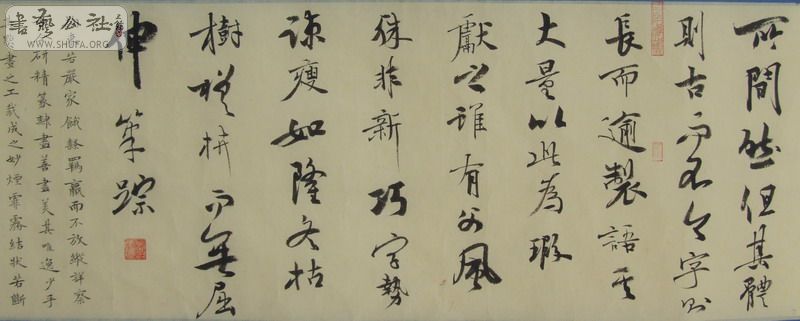 所間然但其體
則古而不今字則
長而逾製語其
大量以此為瑕
獻之雖有父風
殊非新巧字勢
疎瘦如隆冬枯
樹槎枿而無屈
伸筆踪
若嚴家餓隸羈羸而不放縱詳察
研精篆隸盡善盡美其唯逸少乎
畫之工裁成之妙煙霏霧結狀若斷
WWW.SHUFA.ORG